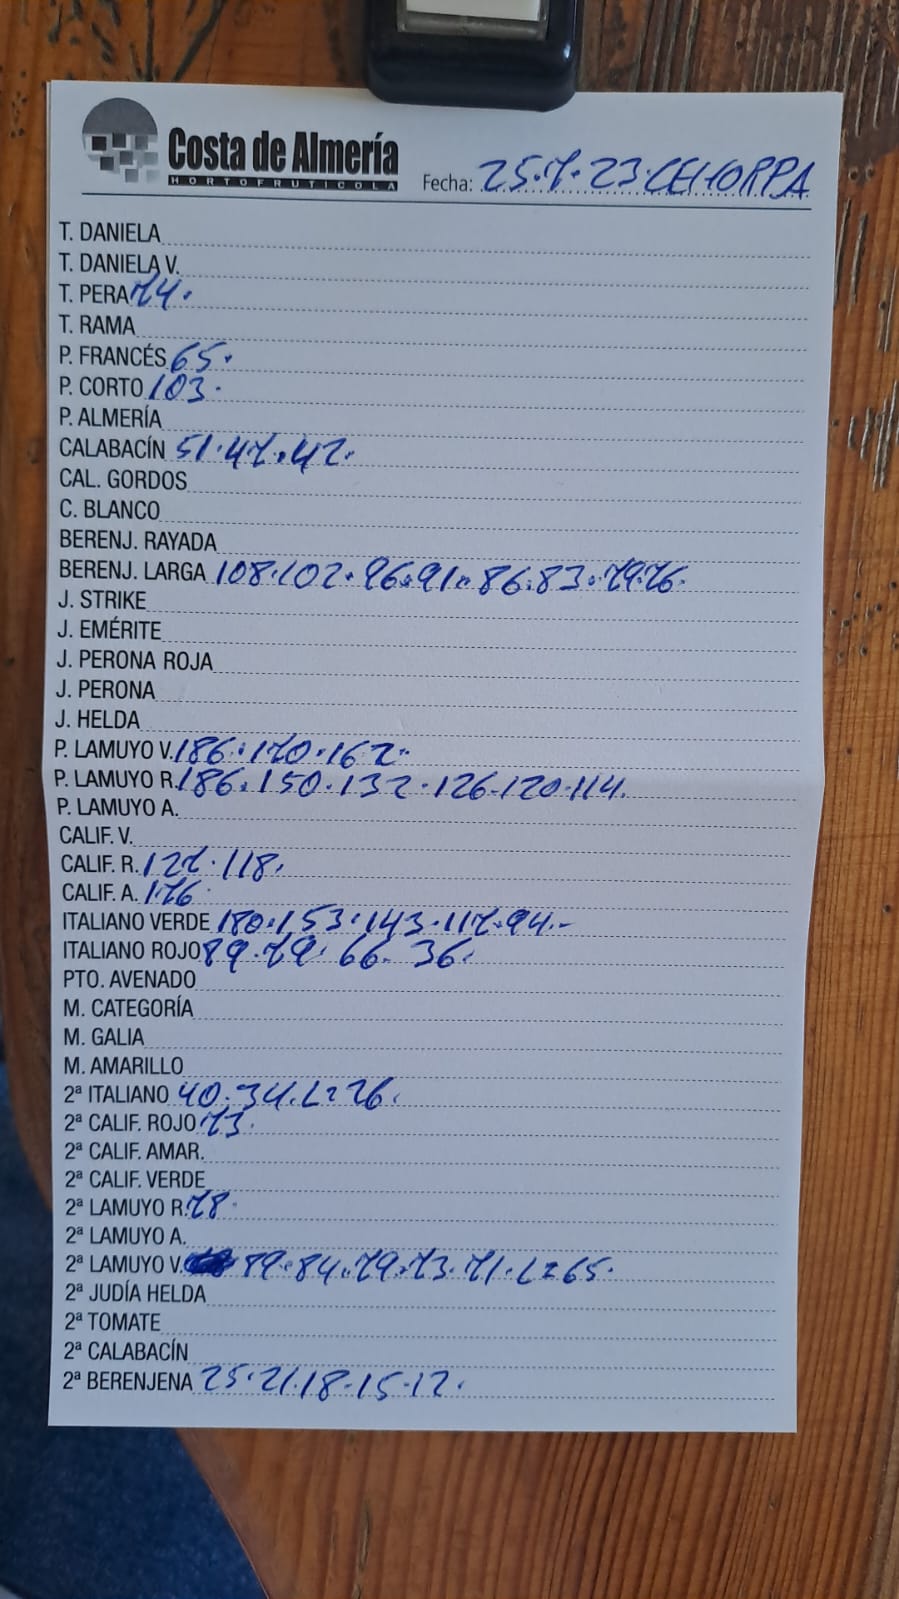 Costa de Almería
HORTOFRUTICOLA
Fecha: 25.7.23 CEHORPA
T. DANIELA
T. DANIELA V.
T. PERA 74.
T. RAMA
P. FRANCÉS 65.
P. CORTO 103.
P. ALMERÍA
CALABACÍN 51.47.42.
CAL. GORDOS
C. BLANCO
BERENJ. RAYADA
BERENJ. LARGA 108.102.96.91.86.83.79.76.
J. STRIKE
J. EMÉRITE
J. PERONA ROJA
J. PERONA
J. HELDA
P. LAMUYO V. 186.170.162.
P. LAMUYO R. 186.150.132.126.120.114.
P. LAMUYO A.
CALIF. V.
CALIF. R. 127.118.
CALIF. A. 176
ITALIANO VERDE 180.153.143.117.94.-
ITALIANO ROJO 89.79.66.36.
PTO. AVENADO
M. CATEGORÍA
M. GALIA
M. AMARILLO
2ª ITALIANO 40.34.L=26.
2ª CALIF. ROJO 73.
2ª CALIF. AMAR.
2ª CALIF. VERDE
2ª LAMUYO R. 78
2ª LAMUYO A.
2ª LAMUYO V. 89.84.79.73.71.L=65.
2ª JUDÍA HELDA
2ª TOMATE
2ª CALABACÍN
2ª BERENJENA 25.21.18.15.12.